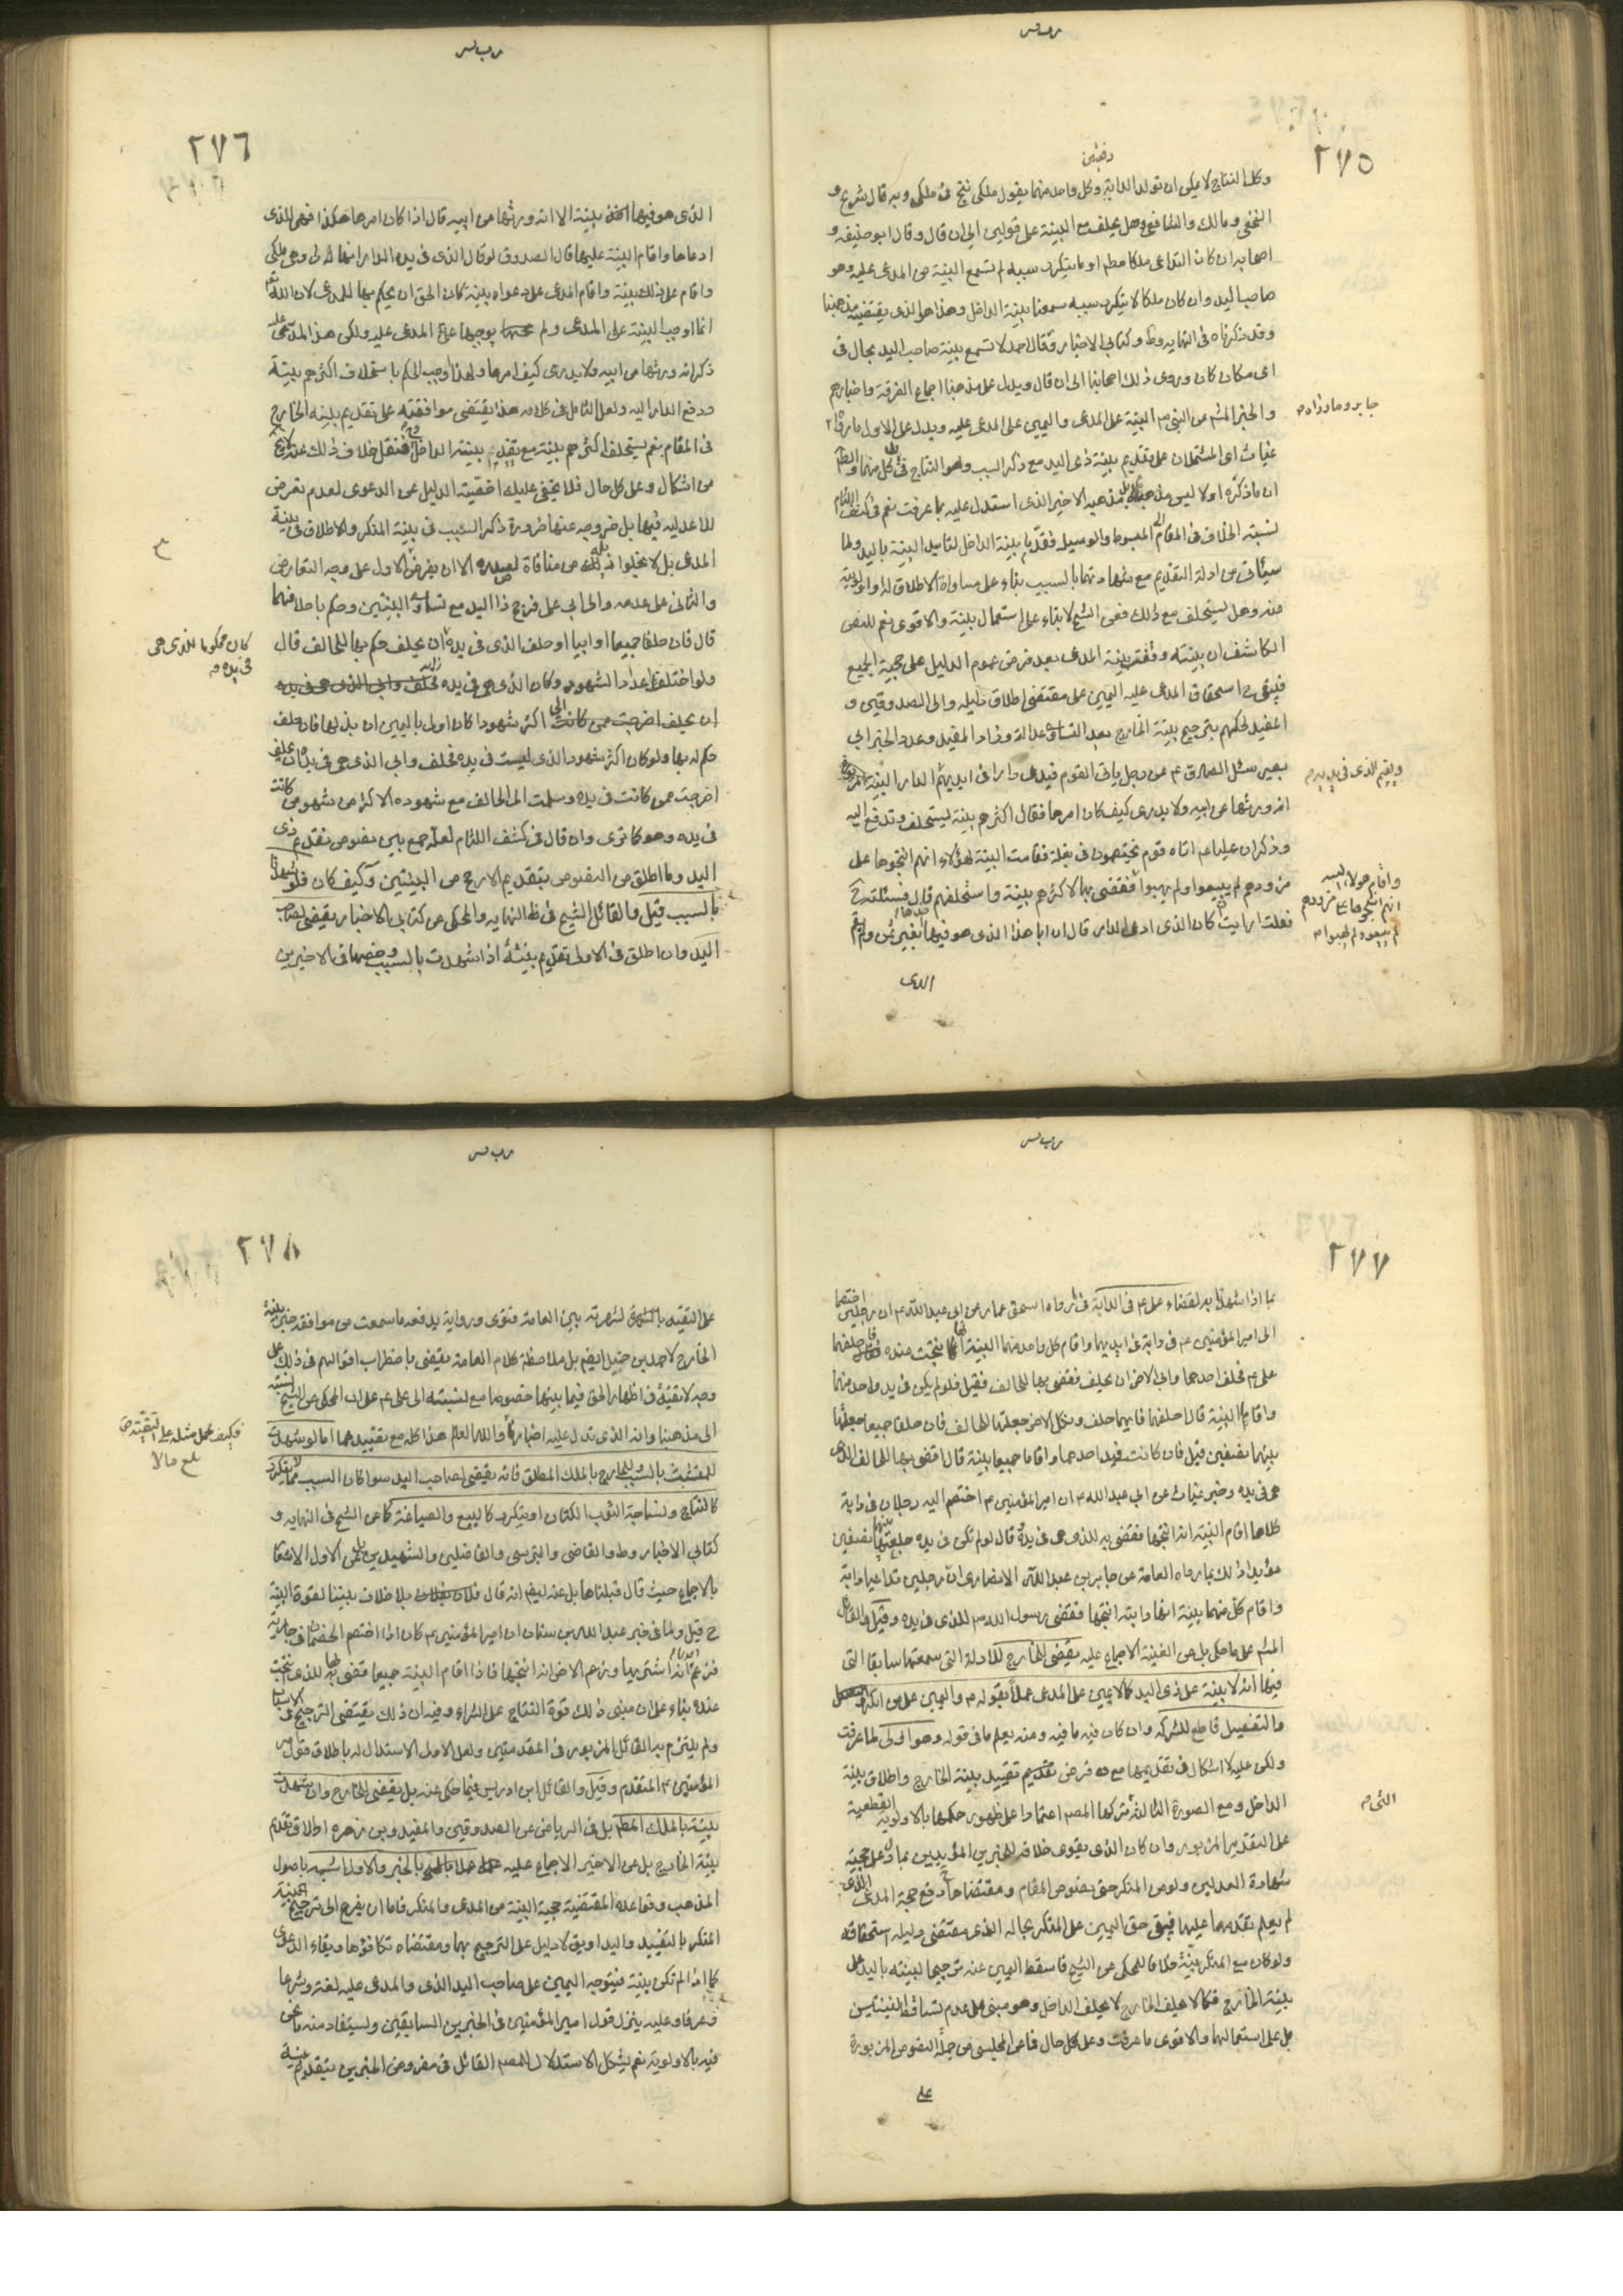 ٢٧٥
وكل النتاج لا يمكن ان تولد الدابة دفعتين وكل واحد منهما يقول ملكى نتج فى ملكى وبه قال شريح و
النخعى ومالك والشافعى وهل يحلف مع البينة على قولين الى ان قال وقال ابو حنيفه و
اصحابه ان كان التداعى ملكا مطلقا او ما يتكرر سببه لم تسمع البينة من المدعى عليه وهو
صاحب اليد وان كان ملكا لا يتكرر سببه سمعنا بينة الداخل وهذا هو الذى يقتضيه مذهبنا
وقد ذكرناه فى النهايه وط وكتابى الاخبار وقال احمد لا تسمع بينة صاحب اليد بحال فى
اى مكان كان وروى ذلك اصحابنا الى ان قال ويدل على مذهبنا اجماع الفرقة واخبارهم
والخبر المشهور عن النبى البينة على المدعى واليمين على المدعى عليه ويدل على الاول ما رواه
جابر وما رواه
غياث اى المشتملان على تقديم بينة ذى اليد مع ذكر السبب وهو النتاج فى كل منهما
ان ما ذكره اولا ليس مذهبا له بل مذهبه الاخير الذى استدل عليه بما عرفت نعم فى كشف اللثام
نسبته الخلاف فى المقام الى المبسوط والوسيلة فقدما بينة الداخل لتأيد البينة باليد ولما
سيأتى من ادلة التقديم مع شهادتهما بالسبب بناء على مساواة الاطلاق له او اولويته
منه وهل يستحلف مع ذلك فعن الشيخ لا بناء على استعمال بينة والاقوى نعم للنص
الكاشف ان بينته وفت بينة المدعى بعد فرض عموم الدليل على حجية الجميع
فيبقى ح استحقاق المدعى عليه اليمين على مقتضى اطلاق دليله والى الصدوقين و
المفيد لحكمهم بترجيح بينة الخارج بعد التساوى عدالة وزاد المفيد وعددا لخبر ابى
بصير سئل الصادق ع عن رجل يأتى القوم فيدعى دارا فى ايديهم الدار البينة
ويقيم الذى فى يديه
انه ورثها عن ابيه ولا يدرى كيف كان امرها فقال اكثرهم بينة يستحلف وتدفع اليه
وذكر ان عليا ع اتاه قوم يختصمون فى بغلة فقامت البينة لهؤلاء انهم انتجوها على
واقام هؤلاء البينة
انهم انتجوها على مذودهم
لم يبيعوا ولم يهبوا
مذودهم لم يبيعوا ولم يهبوا فقضى بها لاكثرهم بينة واستحلفهم قال فسئلته ح
فقلت ارايت ان كان الذى ادعى الدار قال ان ابا هذا الذى هو فيها اخذها بغير ثمن ولم يقم
الذى
٢٧٦
الذى هو فيها بينة الا انه ورثها من ابيه قال اذا كان امرها هكذا فهى للذى
ادعاها واقام البينة عليها قال الصدوق لو قال الذى فى يده الدار انها لى وهى ملكى
واقام على ذلك بينة واقام المدعى على دعواه بينة كان الحق ان يحكم بها للمدعى لان الله
انما اوجب البينة على المدعى ولم يوجبها على المدعى عليه ولكن هذا المدعى عليه
ذكر انه ورثها من ابيه ولا يدرى كيف امرها ولهذا اوجب الحكم باستحلاف اكثرهم بينة
ودفع الدار اليه ولعل التأمل فى كلامه هذا يقتضى موافقته على تقديم بينة الخارج
فى المقام نعم يستحلف اكثرهم بينة مع تقديم بينة الداخل فنقل خلاف ذلك عنه لا يخ
من اشكال وعلى كل حال فلا يخفى عليك اخصية الدليل عن الدعوى لعدم تعرض
للاعدلية فيها بل خروجه عنها ضرورة ذكر السبب فى بينة المنكر والاطلاق فى بينة
المدعى بل لا يخلوا ذيله من منافاة لصدره الا ان يفرض الاول على وجه التعارض
والثانى على عدمه والحابى على فرج ذا اليد مع تساوى البينتين وحكم باحلافهما
قال فان حلفا جميعا او ابيا او حلف الذى فى يده ان يحلف حكم بها للحالف قال
كان محكوما للذى هى
فى يده
ولو اختلف اعداد الشهود وكان الذى هى فى يده
ان يحلف اخرجت ممن كانت اكثر شهودا كان اولى باليمين ان بذلها فان حلف
حكم له بها ولو كان اكثر شهودا الذى ليست فى يده فحلف وابى الذى هى فى يده ان يحلف
اخرجت ممن كانت فى يده وسلمت الى الحالف مع شهوده الاكثر من شهود من كانت
فى يده وهو كما ترى وان قال فى كشف اللثام لعله جمع بين نصوص تقديم ذى
اليد وما اطلق من النصوص بتقديم الارجح من البينتين وكيف كان فلو شهدتا
بالسبب قيل والقائل الشيخ فى ظ النهايه والمحكى عن كتابى الاخبار يقضى لصاحب
اليد وان اطلق فى الاولى تقديم بينته اذا شهدت بالسبب وخصها فى الاخيرين
٢٧٧
بما اذا شهدتا به لقضاء على ع فى الدابة فى ما رواه اسحق عمار عن ابى عبدالله ع ان رجلين اختصما
الى امير المؤمنين ع فى دابة فى ايديهما واقام كل واحد منهما البينة انها نتجت عنده فاحلفهما
على ع فحلف احدهما وابى الاخر ان يحلف فقضى بها للحالف فقيل فلو لم يكن فى يد واحد منهما
واقاما البينة قال احلفهما فايهما حلف ونكل الاخر جعلتها للحالف فان حلفا جميعا جعلتها
بينهما نصفين قيل فان كانت فى يد احدهما واقاما جميعا بينة قال اقضى بها للحالف الذى
هى فى يده وخبر غياث عن ابى عبد الله ع ان امير المؤمنين ع اختصم اليه رجلان فى دابة
كلاهما اقام البينة انه انتجها فقضى به للذى هى فى يده وقال لو لم تكن فى يده جعلتها بينهما نصفين
مؤيدا ذلك بما رواه العامة عن جابر بن عبد الله الانصارى ان رجلين تداعيا دابة
واقام كل منهما بينة انها دابته انتجها فقضى رسول الله للذى فى يده وقيل والقائل
المشهور على ما حكى بل عن الغنية الاجماع عليه يقضى للخارج للادلة التى سمعتها سابقا التى
فيها انه لا بينة على ذى اليد كما لا يمين على المدعى عملا بقوله واليمين على من انكر
والتفصيل قاطع للشركة وان كان فيه ما فيه ومنه يعلم ما فى قوله وهو اولى لما عرفت
ولكن عليه لا اشكال فى تقديمها مع فرض تقديم تقييد بينة الخارج واطلاق بينة
الداخل ومع الصورة الثالثة تركها المصنف اعتمادا على ظهور حكمها بالاولوية القطعية
التى
على التقدير المزبور وان كان الذى يقوى خلافه للخبرين المؤيدين بما دل على حجية
شهادة العدلين ولو من المنكر حتى بخصوص المقام ومقتضاها دفع حجة المدعى الذى
لم يعلم تقدمها عليها فيبقى حق اليمين على المنكر بحاله الذى مقتضى دليله استحقاقه
ولو كان مع المنكر بينة خلافا للمحكى عن الشيخ فاسقط اليمين عنه ترجيحا لبينته باليد على
بينة الخارج فكما لا يحلف الخارج لا يحلف الداخل وهو مبنى على عدم تساقط البينتين
بل على استعمالهما والاقوى ما عرفت وعلى كل حال فما عن المجلسى من حملة النصوص المزبورة
على
٢٧٨
على التقية شهرته بين العامة فتوى ورواية يدفعه ما سمعت من موافقة خبر بينة
الخارج لاحمد بن حنبل ايضا بل ملاحظة كلام العامة يقضى باضطراب اقوالهم فى ذلك على
وجه لا تقية فى اظهار الحق فيما بينها خصوصا مع نسبته الى على ع على ان المحكى عن الشيخ نسبته
الى مذهبنا وانه الذى تدل عليه اخبارنا والله العالم هذا كله مع تقييدهما اما لو شهدت
فكيف يحمل مثله على التقية
بلغ مقابلا
للمتشبث بالسبب وللخارج بالملك المطلق فانه يقضى لصاحب اليد سوا كان السبب مما لا يتكرر
كالنتاج ونساجة الثوب الكتان او يتكرر كالبيع والصياغة كما عن الشيخ فى النهايه و
كتابى الاخبار وط والقاضى والطبرسى والفاضلين والشهيدين بل عن الاول الاتفاق
بالاجماع حيث قال قبلناها بل عنه ايضا انه قال بلا خلاف بيننا لقوة البينة
ح قيل ولما فى خبر عبد الله بن سنان ان امير المؤمنين ع كان اذا اختصم الخصمان فى جارية
فزعم احدهما انه اشتريها وزعم الاخر انه انتجها فاذا اقاما البينة جميعا قضى بها للذى نتجت
عنده بناء على ان مبنى ذلك قوة النتاج على الشراء وفيه ان ذلك يقتضى الترجيح فى الاسباب
ولم يلتزم به القائل المزبور فى المقدمتين ولعل الاولى الاستدلال له باطلاق قول امير
المؤمنين ع المتقدم وقيل والقائل ابن ادريس فيما حكى عنه بل يقضى للخارج وان شهدت
بينته بالملك المطلق بل فى الرياض عن الصدوقين والمفيد وبن زهره اطلاق تقديم
بينة الخارج بل عن الاخير الاجماع عليه عملا بالخبر والاولى اشبه باصول
المذهب وقواعده المقتضية حجية البينة من المدعى والمنكر فاما ان يفرج الى ترجيح بينة
المنكر بالتقييد واليد او يق لا دليل على الترجيح بهما ومقتضاه تكافؤها وبقاء الدعوى
كما اذا لم تكن بينة فيتوجه اليمين على صاحب اليد الذى والمدعى عليه لغة وشرعا
وعرفا وعليه ينزل قول امير المؤمنين فى الخبرين السابقين ويستفاد منه ما نحن
فيه بالاولوية نعم يشكل الاستدلال للمصنف القائل فى مفروض الخبرين بتقديم بينة